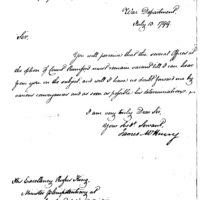 War Department,
July 13. 1799.
Sir,
You will perceive that the second Officer at
the option of Count Rumford must remain vacant till I can hear
from you on the subject and will I have no doubt forward me by
various conveyances and as soon as possible his determination.
I am very truly Dear Sir,
Your Obdt. Servant,
James McHenry
His Excellency Rufus King,
Minister Plenipotentiary at